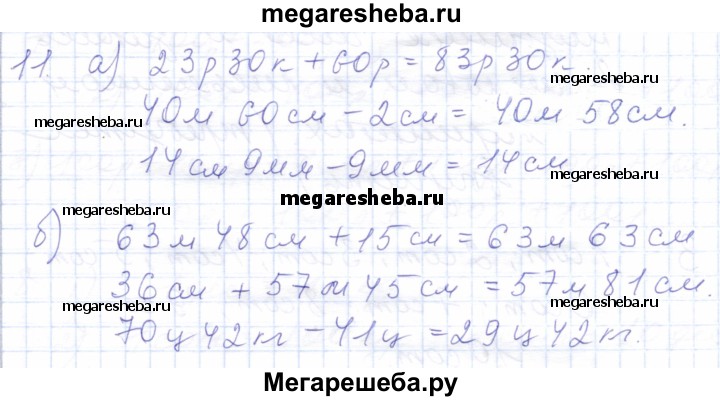 megaresheba.ru
11. а) 23р 30к + 60р = 83р 30к.
megaresheba.ru
40м 60см - 2см = 40м 58см.
megaresheba.ru megaresheba.ru
14см 9мм - 9мм = 14см
megaresheba.ru
megaresheba.ru
б) 63м 48см + 15см = 63м 63см
megaresheba.ru
36см + 57м 45см = 57м 81см.
megaresheba.ru megaresheba.ru
70ц 42кг - 41ц = 29ц 42кг.
Мегарешеба.ру